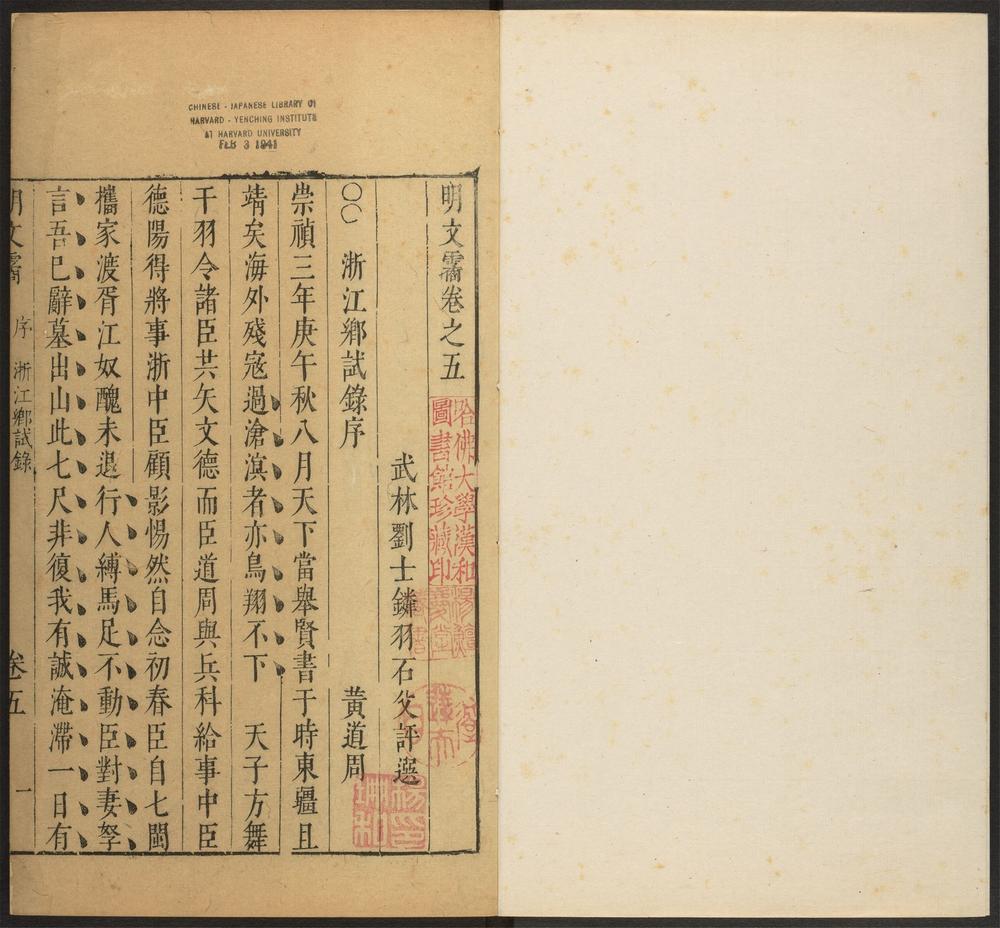 CHINESE - JAPANESE LIBRARY OF
HARVARD - YENCHING INSTITUTE
AT HARVARD UNIVERSITY
FEB 3 1941
明文霱卷之五
哈佛大學漢和
圖書館珍藏印
武林劉士鏻羽石父評選
○○ 浙江鄉試錄序 黃道周
崇禎三年庚午秋八月天下當舉賢書于時東疆且
靖矣海外殘寇過滄溟者亦鳥翔不下 天子方舞
干羽令諸臣共矢文德而臣道周與兵科給事中臣
德陽得將事浙中臣顧影惕然自念初春臣自七閩
攜家渡胥江奴醜未退行人縛馬足不動臣對妻孥
言吾已辭墓出山此七尺非復我有誠淹滯一日有
明文霱 序 浙江鄉試錄 卷五 一